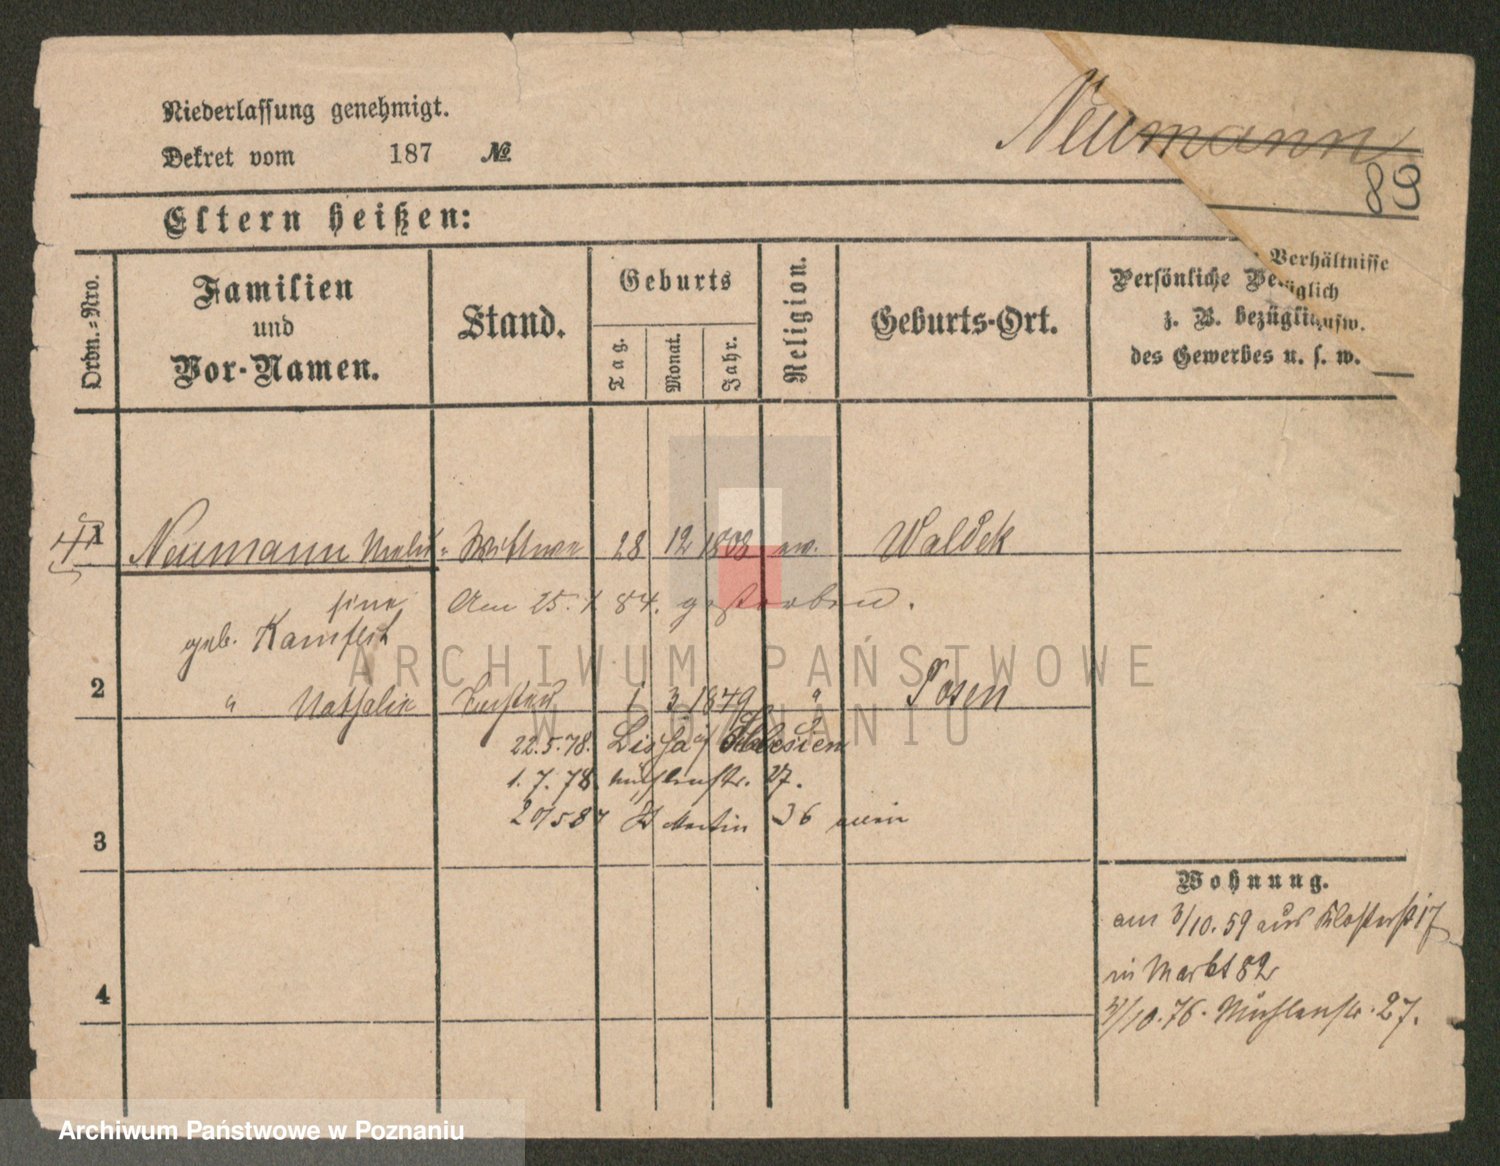 Niederlassung genehmigt.
Dekret vom 187 №
Neumann
83
Eltern heißen:
Ordn.=Nro.
Familien
und
Vor-Namen.
Stand.
Geburts
Tag.
Monat.
Jahr.
Religion.
Geburts-Ort.
Verhältnisse
Persönliche Be
üglich
z. B. bezügli
usw.
des Gewerbes u. s. w.
1 Neumann Wittwe 28 12 1808 ev. Waldek
sine
Am 25. 84. gestorben.
geb.
2 " Nathalie Tochter 1 3 1849 " Posen
22.5.78.
1. 7. 78 Mühlenstr. 27.
20/5 87 St Martin 36
3
Wohnung.
am 3/10. 59 aus Klosterst 17
in Markt 82
3/10. 76. Mühlenstr. 27.
4
ARCHIWUM PAŃSTWOWE
W POZNANIU
Archiwum Państwowe w Poznaniu